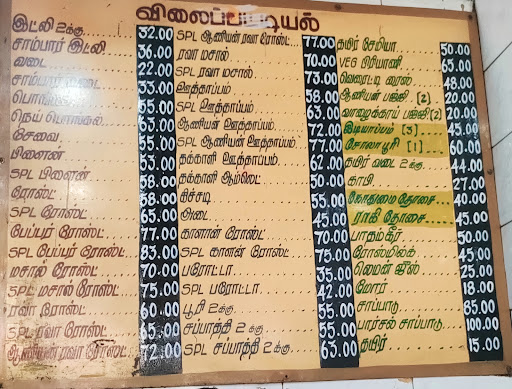 விலைப்பட்டியல்
இட்லி 2க்கு 32.00
சாம்பார் இட்லி 36.00
வடை 22.00
சாம்பார் வடை 33.00
பொங்கல் 55.00
நெய் பொங்கல்
சேவை
பிளைன்
SPL பிளைன் 58.00
ரோஸ்ட் 58.00
SPL ரோஸ்ட் 65.00
பேப்பர் ரோஸ்ட் 77.00
SPL பேப்பர் ரோஸ்ட் 83.00
மசால் ரோஸ்ட் 70.00
SPL மசால் ரோஸ்ட் 75.00
ரவா ரோஸ்ட் 60.00
SPL ரவா ரோஸ்ட் 65.00
ஆனியன் ரவா ரோஸ்ட் 72.00
SPL ஆனியன் ரவா ரோஸ்ட் 77.00
ரவா மசால் 70.00
SPL ரவா மசால் 73.00
ஊத்தாப்பம் 58.00
SPL ஊத்தாப்பம் 63.00
ஆனியன் ஊத்தாப்பம் 72.00
SPL ஆனியன் ஊத்தாப்பம் 77.00
தக்காளி ஊத்தாப்பம் 62.00
தக்காளி ஆம்லெட் 50.00
கிச்சடி 55.00
அடை 45.00
காளான் ரோஸ்ட் 70.00
SPL காளான் ரோஸ்ட் 75.00
பரோட்டா 35.00
SPL பரோட்டா 42.00
பூரி 2க்கு 55.00
சப்பாத்தி 2க்கு 55.00
SPL சப்பாத்தி 2க்கு 63.00
தயிர் சேமியா 50.00
VEG பிரியாணி 63.00
வெரைட்டி ரைஸ் 48.00
ஆனியன் பஜ்ஜி [2] 20.00
வாழைக்காய் பஜ்ஜி [2] 20.00
இடியாப்பம் [3] 45.00
சோலாபூரி [1] 60.00
தயிர் வடை 2க்கு 44.00
காபி 27.00
கோதுமை தோசை 40.00
ராகி தோசை 45.00
பாதம்கீர் 50.00
ரோஸ்மில்க் 45.00
லெமன் ஜீஸ் 25.00
மோர் 18.00
சாப்பாடு 85.00
பார்சல் சாப்பாடு 100.00
தயிர் 15.00